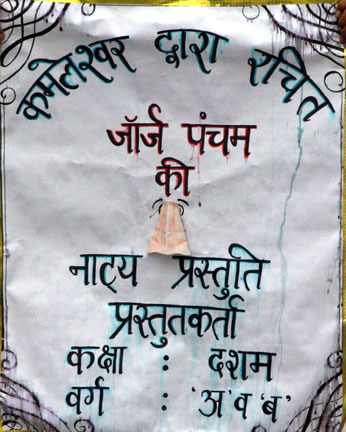 कमलेश्वर द्वारा रचित
जॉर्ज पंचम
की
नाट्य प्रस्तुति
प्रस्तुतकर्ता
कक्षा : दशम
वर्ग : 'अ' व 'ब'